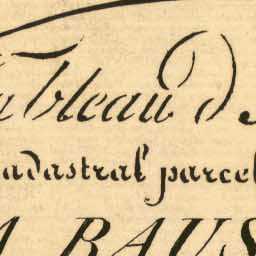 Tableau d
cadastral parcel
A RAUS